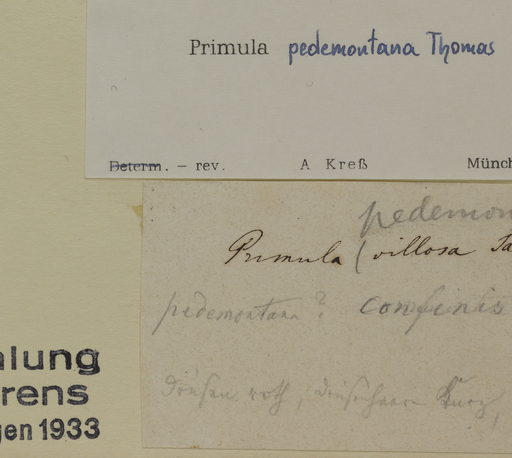 Primula pedemontana Thomas
Determ. – rev. A Kreß Münch
pedemon
Primula (villosa Ja
pedemontana? confinis
Drüsen roth, Drüsenhaare kurz,
hlung
rens
gen 1933